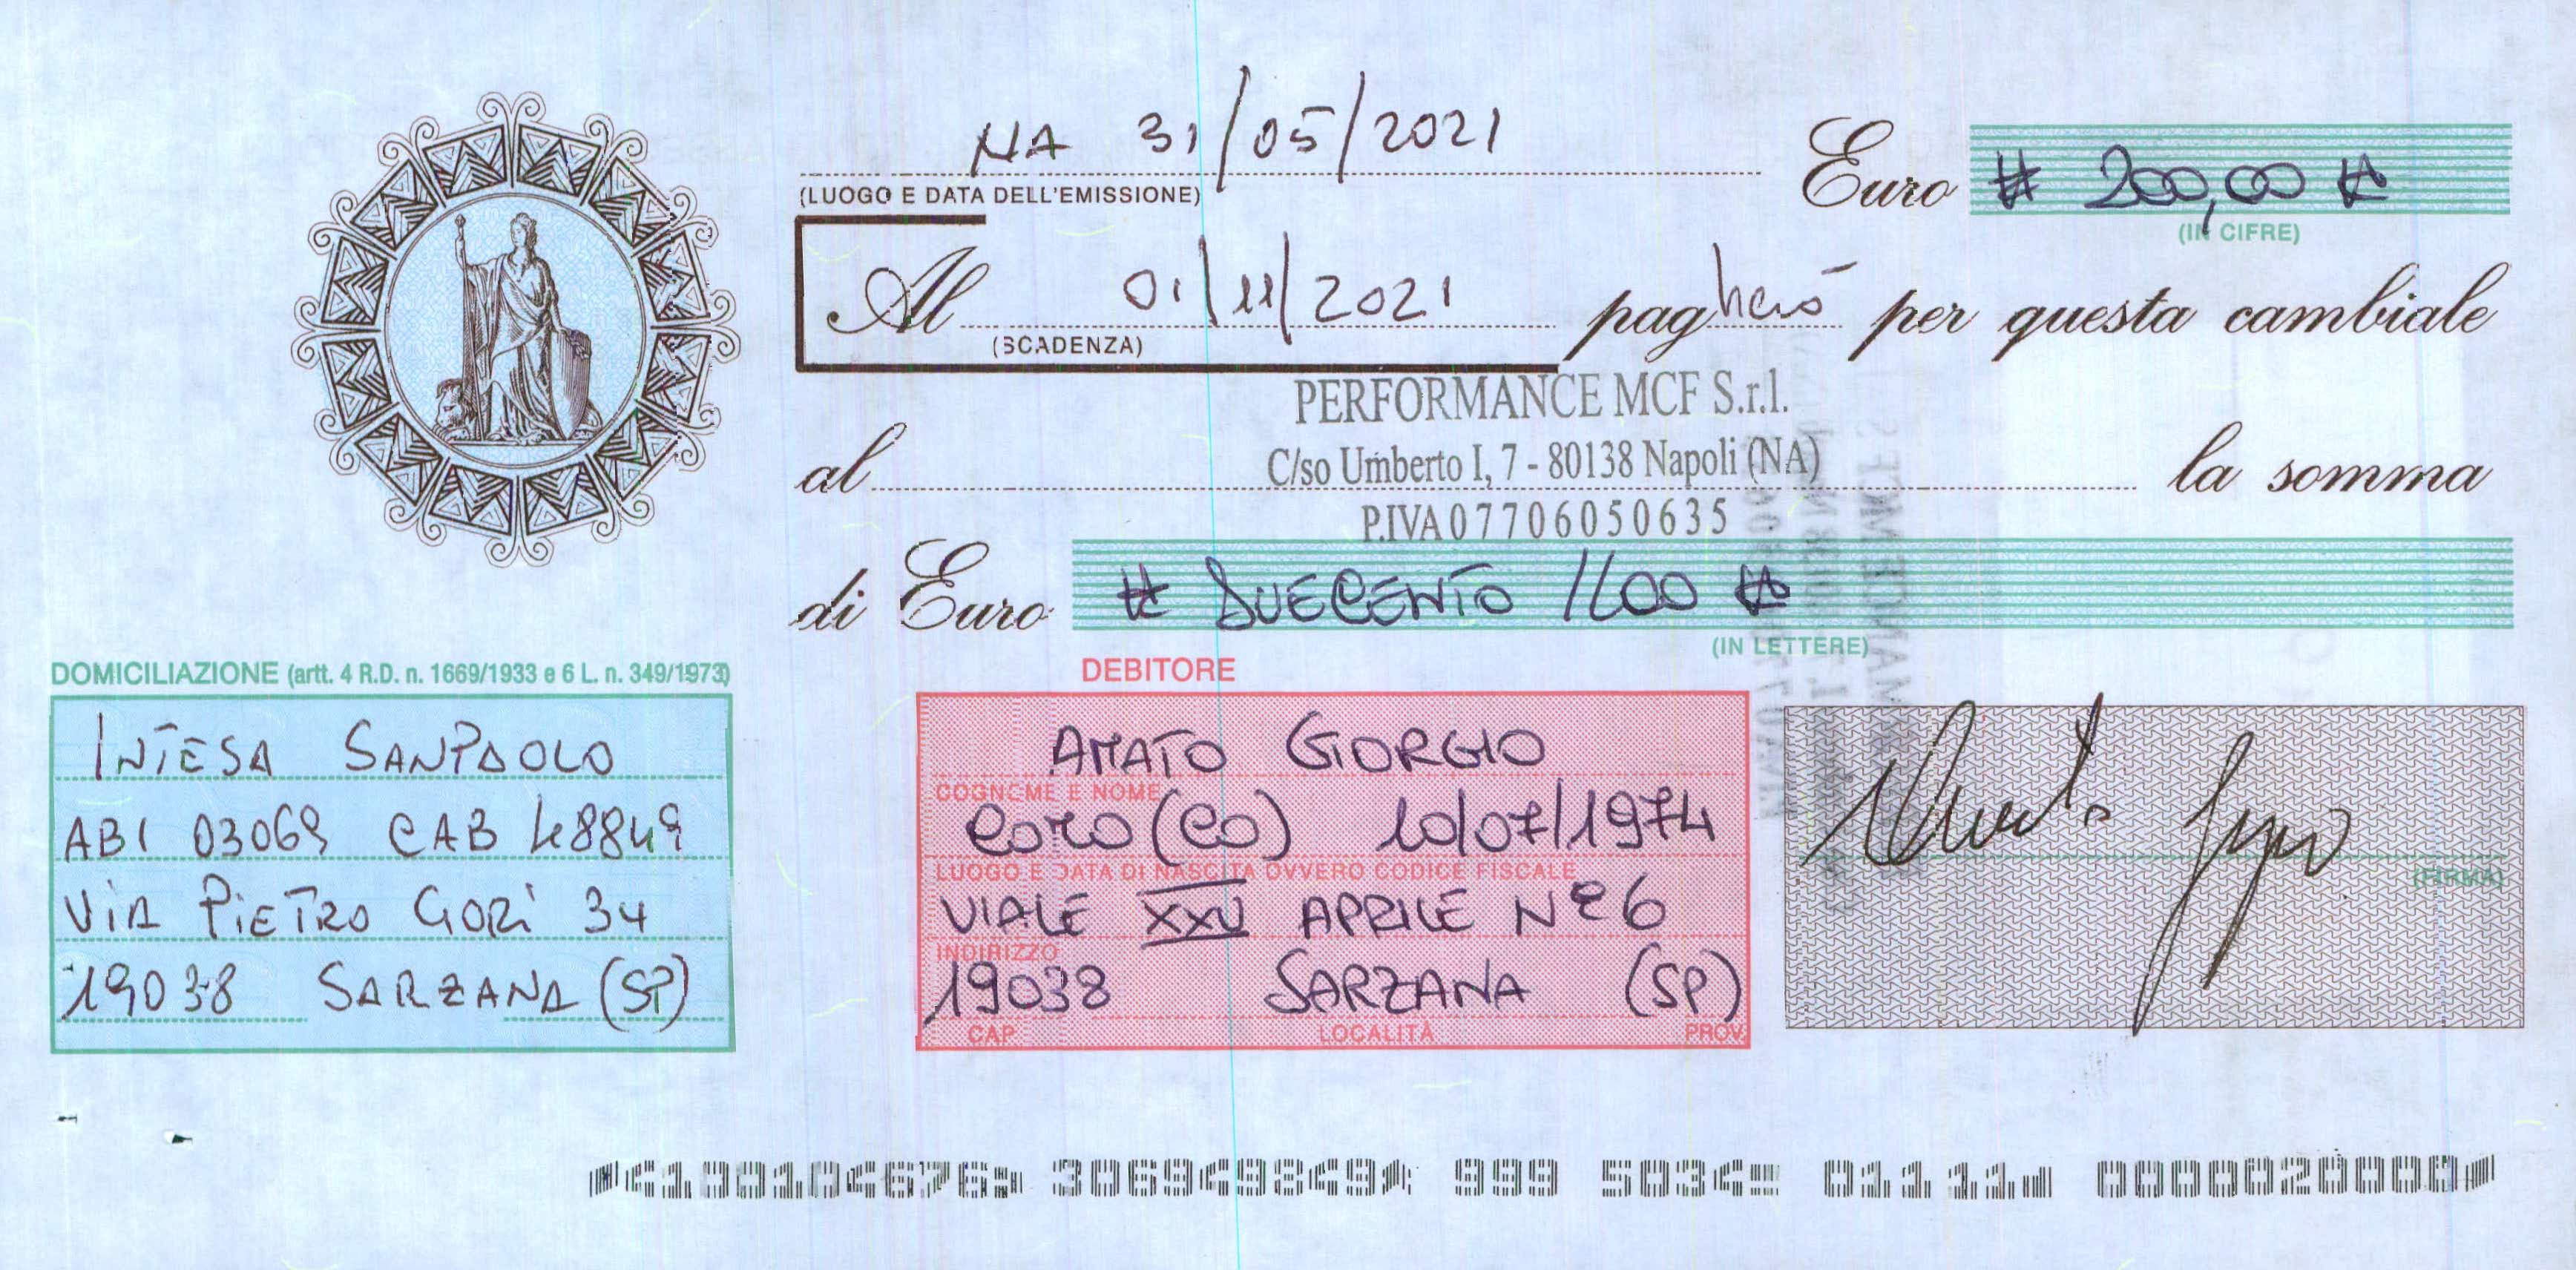 NA 31/05/2021
(LUOGO E DATA DELL'EMISSIONE)
Euro # 200,00 #
(IN CIFRE)
Al 01/11/2021 pagherò per questa cambiale
(SCADENZA)
PERFORMANCE MCF S.r.l.
C/so Umberto I, 7 - 80138 Napoli (NA)
al la somma
P.IVA 07706050635
di Euro # DUECENTO /00 #
(IN LETTERE)
DOMICILIAZIONE (artt. 4 R.D. n. 1669/1933 e 6 L. n. 349/1973)
INTESA SANPAOLO
ABI 03069 CAB 48849
VIA PIETRO GORI 34
19038 SARZANA (SP)
DEBITORE
AMATO GIORGIO
COGNOME E NOME
(CO) 10/07/1974
LUOGO E DATA DI NASCITA OVVERO CODICE FISCALE
VIALE XXV APRILE N° 6
INDIRIZZO
19038 SARZANA (SP)
CAP LOCALITÀ PROV.
(FIRMA)
999 5034 01111 0000020000